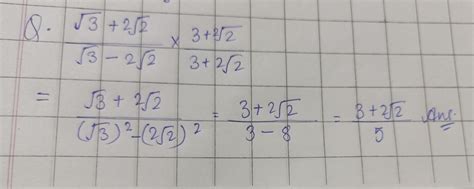 Q. (√3 + 2√2)/(√3 - 2√2) × (3 + 2√2)/(3 + 2√2)
= (√3 + 2√2)/((√3)² - (2√2)²) = (3 + 2√2)/(3 - 8) = (3 + 2√2)/5 Ans.